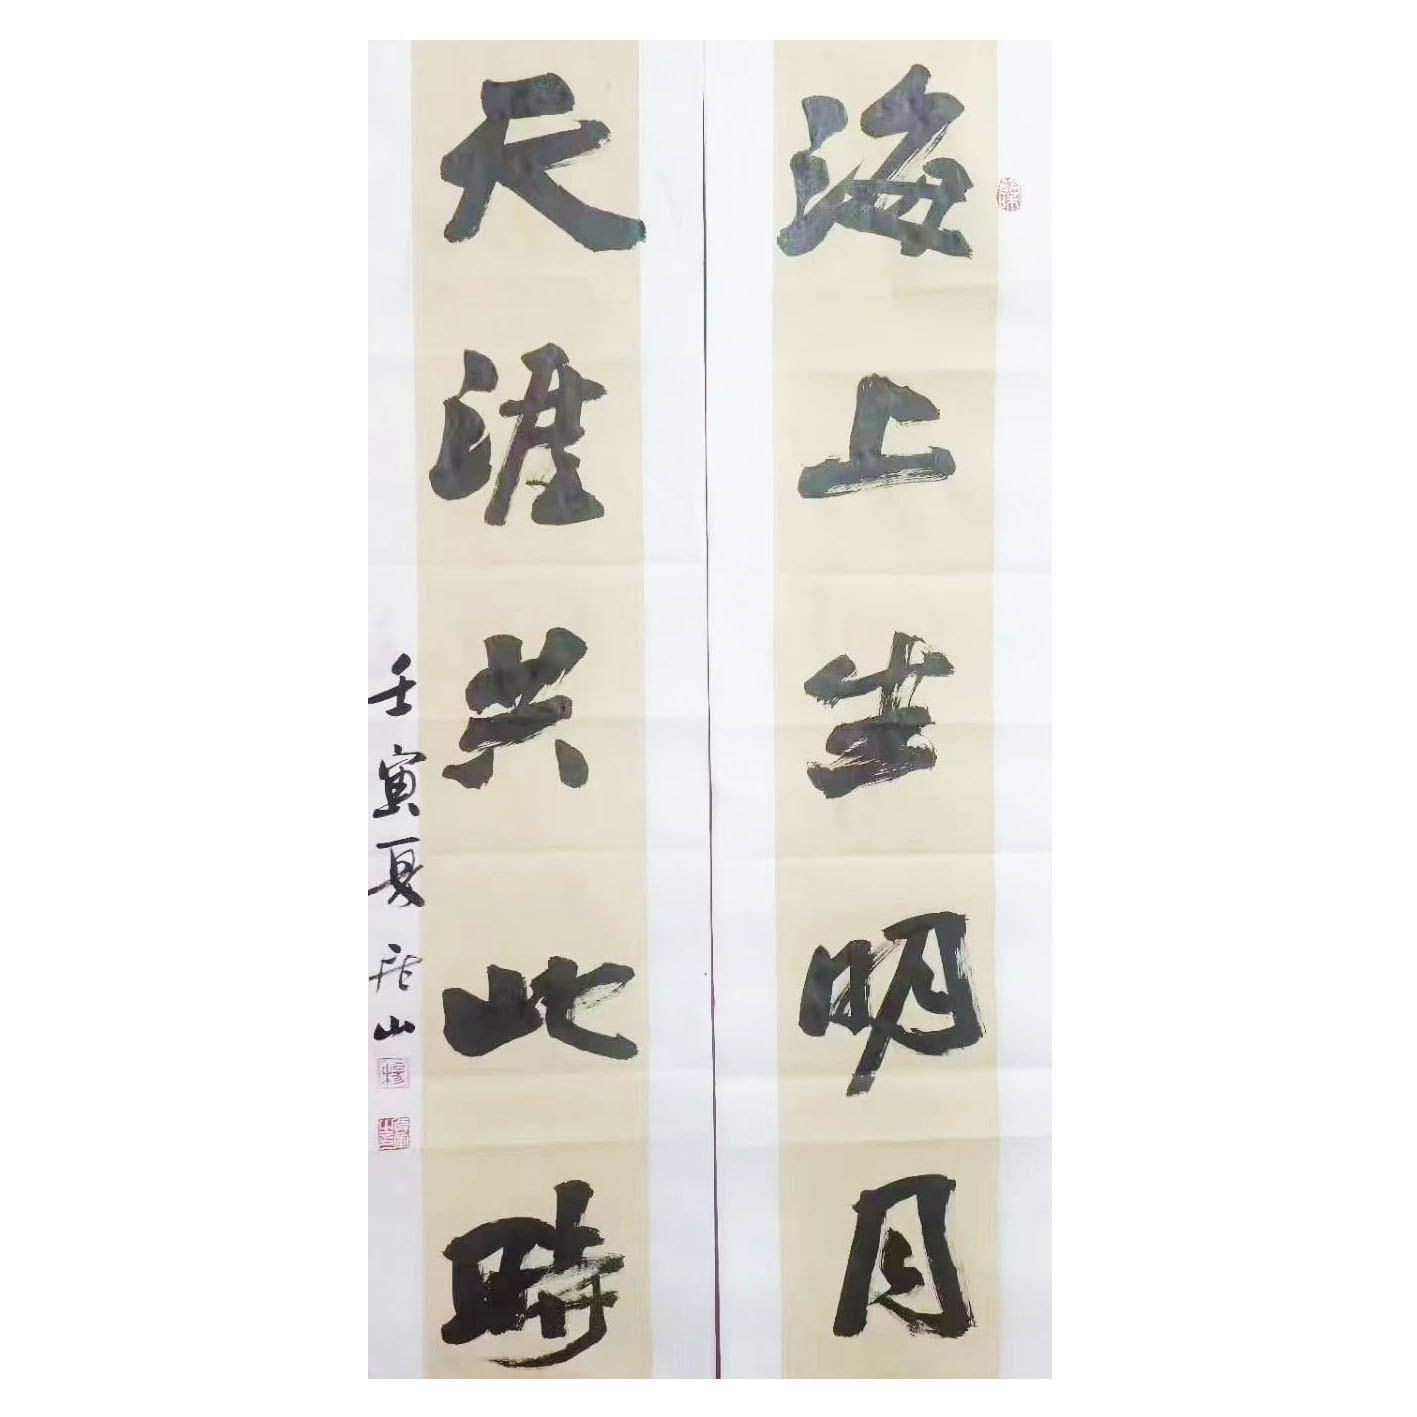 海上生明月
天涯共此時
壬寅夏 山
楊